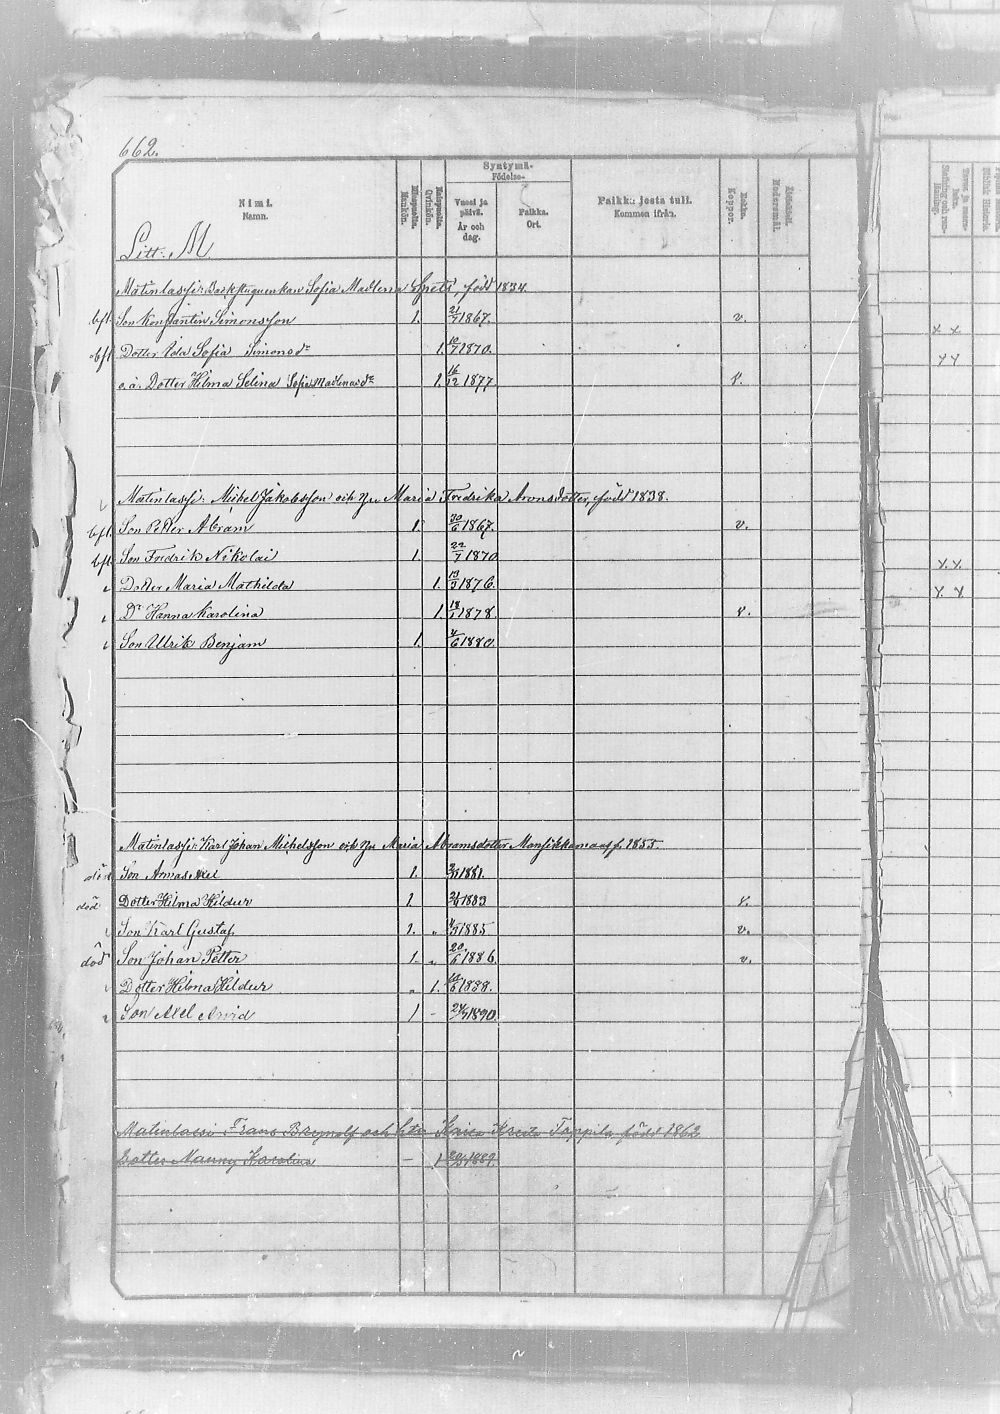 662.
Nimi. Namn.
Miespuolia. Mankön.
Naispuolia. Qvinkön.
Syntymä- Födelse-
Vuosi ja päivä. År och dag.
Paikka. Ort.
Paikka josta tuli. Kommen ifrån.
Rokko. Koppor.
Nodersmål.
Litt. M
Matinlassi: Backstuguenkan Sofia Madlena Spets, född 1834.
bft. Son Konstantin Simonsson 1. 21/7 1867. v.
bft Dotter Ida Sofia Simonsdr 1. 10/7 1870.
o.ä. Dotter Hilma Selina Sofia Madlenasdr 1. 16/12 1877 v.
Matinlassi: Mickel Jakobsson och hu Maria Fredrika Aronsdotter, född 1838.
bft. Son Petter Abram 1. 30/6 1867. v.
bft. Son Fredrik Nikolai 1. 22/7 1870
Dotter Maria Mathilda 1. 13/9 1876.
Dr Hanna Karolina 1. 18/1 1878. v.
Son Ulrik Benjam 1. 4/6 1880.
Matinlassi: Karl Johan Michelsson och hu Maria Abramsdotter Mansikkamaa f. 1855.
död Son Armas Axel 1. 1881.
död Dotter Hilma Hildur 1. 1883 v.
Son Karl Gustaf 1. „ 1885 v.
död Son Johan Petter 1. „ 20/6 1886. v.
Dotter Hilma Hildur „ 1. 1888.
Son Axel Arvid 1 - 24/7 1890
Matinlassi Frans Brynolf och hu Kaisa Greta Tappila född 1862
Dotter Nanny Karolina - 1 1889.